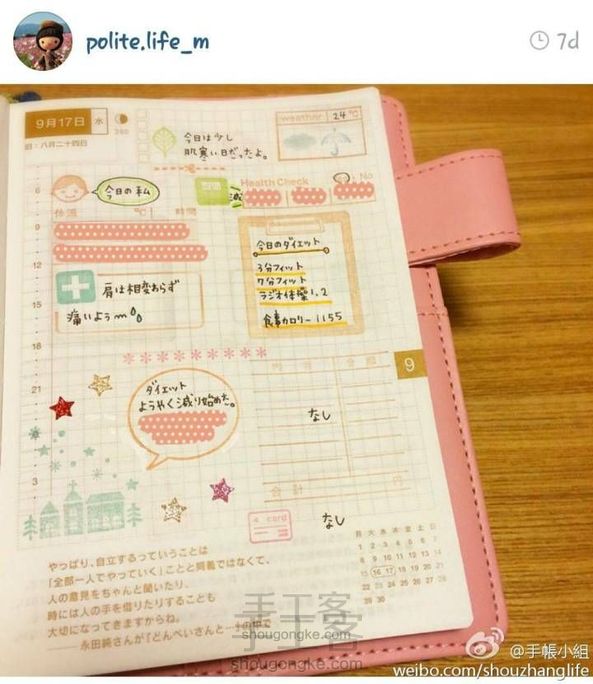 polite.life_m
7d
9月17日
水
旧：八月二十四日
260
今日は少し
肌寒い日だったよ。
weather 24 ℃
今日の私
Health Check
No
体温 ℃ 時間
今日のダイエット
3分フィット
7分フィット
ラジオ体操1.2
食事カロリー 1155
肩は相変わらず
痛いよぅm
6
9
12
15
18
21
3
ダイエット
ようやく減り始めた。
内 容 金 額
9
なし
合 計 円
card
なし
やっぱり、自立するっていうことは
「全部一人でやっていく」ことと同義ではなくて、
人の意見をちゃんと聞いたり、
時には人の手を借りたりすることも
大切になってきますからね。
永田純さんが『どんべいさんと
月 火 水 木 金 土 日
1 2 3 4 5 6 7
8 9 10 11 12 13 14
15 16 17 18 19 20 21
22 23 24 25 26 27 28
29 30
手工客
shougongke.com
shougongke.com
@手帳小組
weibo.com/shouzhanglife